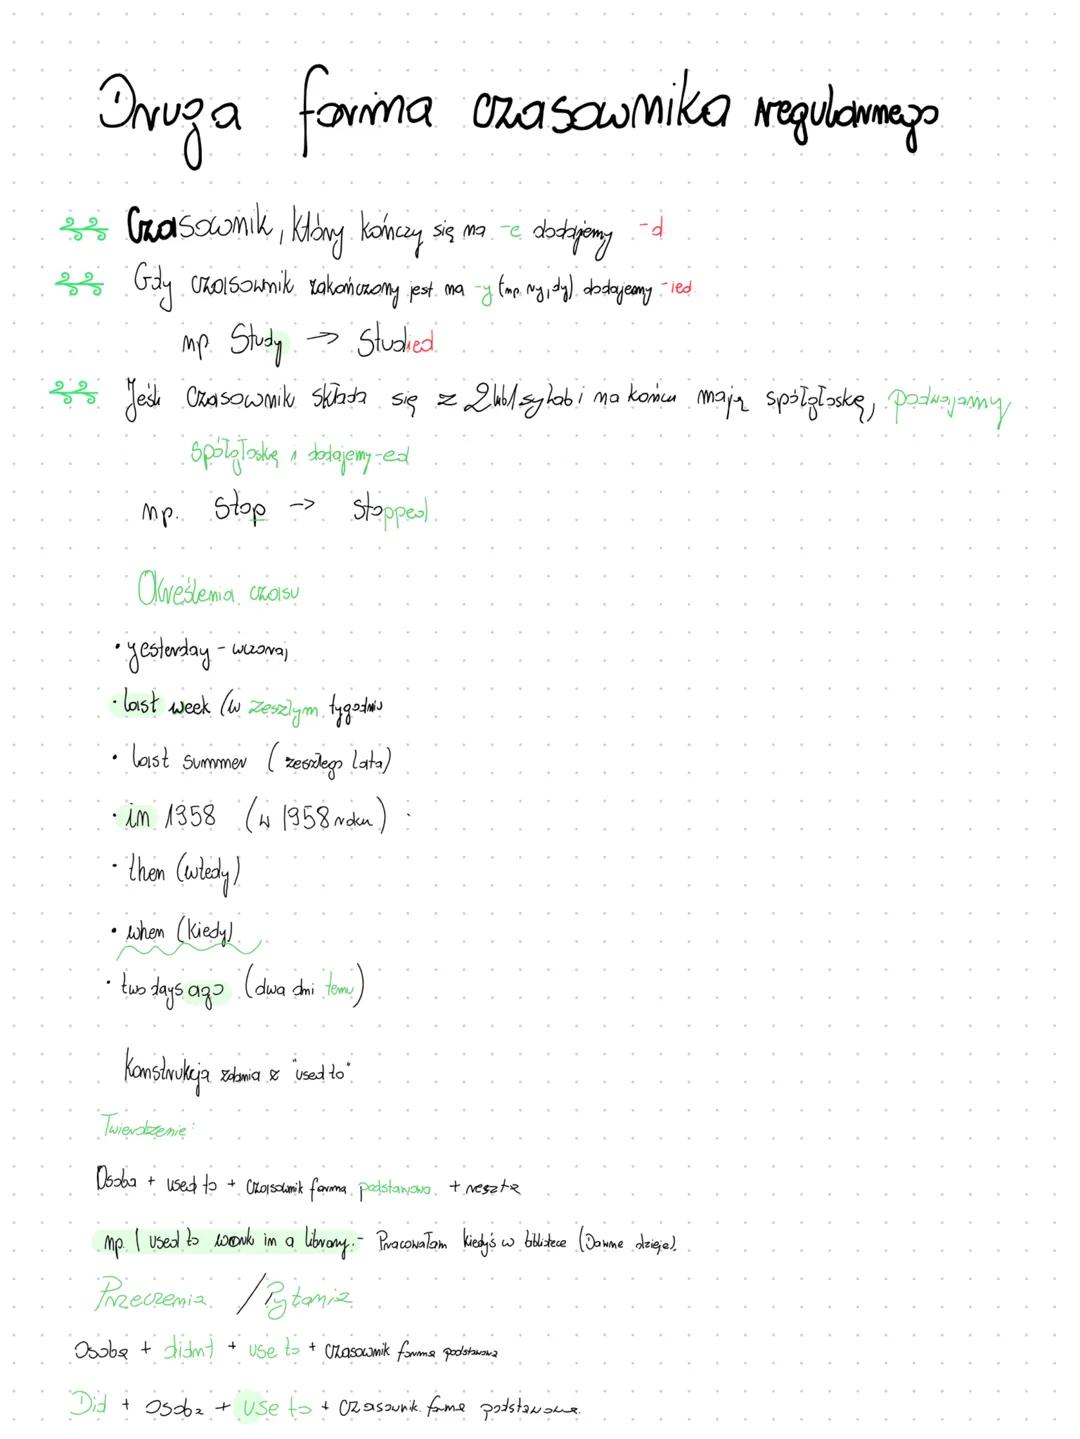 Druga forma czasownika regularnego
Czasownik, który kończy się na -e dodajemy -d
Gdy czasownik zakończony jest na -y (np. ry, dy) dodajemy -ied
np. Study → Studied
Jeśli czasownik składa się z 2 lub 1 sylab i na końcu mają spółgłoskę, podwajamy
spółgłoskę i dodajemy -ed
np. Stop -> stopped
Określenia czasu
• yesterday - wczoraj
• last week (w zeszłym tygodniu
• last summer (zeszłego lata)
• in 1358 (w 1958 roku)
• then (wtedy)
• when (kiedy)
• two days ago (dwa dni temu)
Konstrukcja zdania z "used to"
Twierdzenie:
Osoba + used to + czasownik forma podstawowa + reszta
np. I used to work in a library. - Pracowałam kiedyś w bibliotece (Dawne dzieje).
Przeczenia / Pytania
Osoba + didnt + use to + czasownik forma podstawowa
Did + osoba + use to + czasownik forma podstawowa.